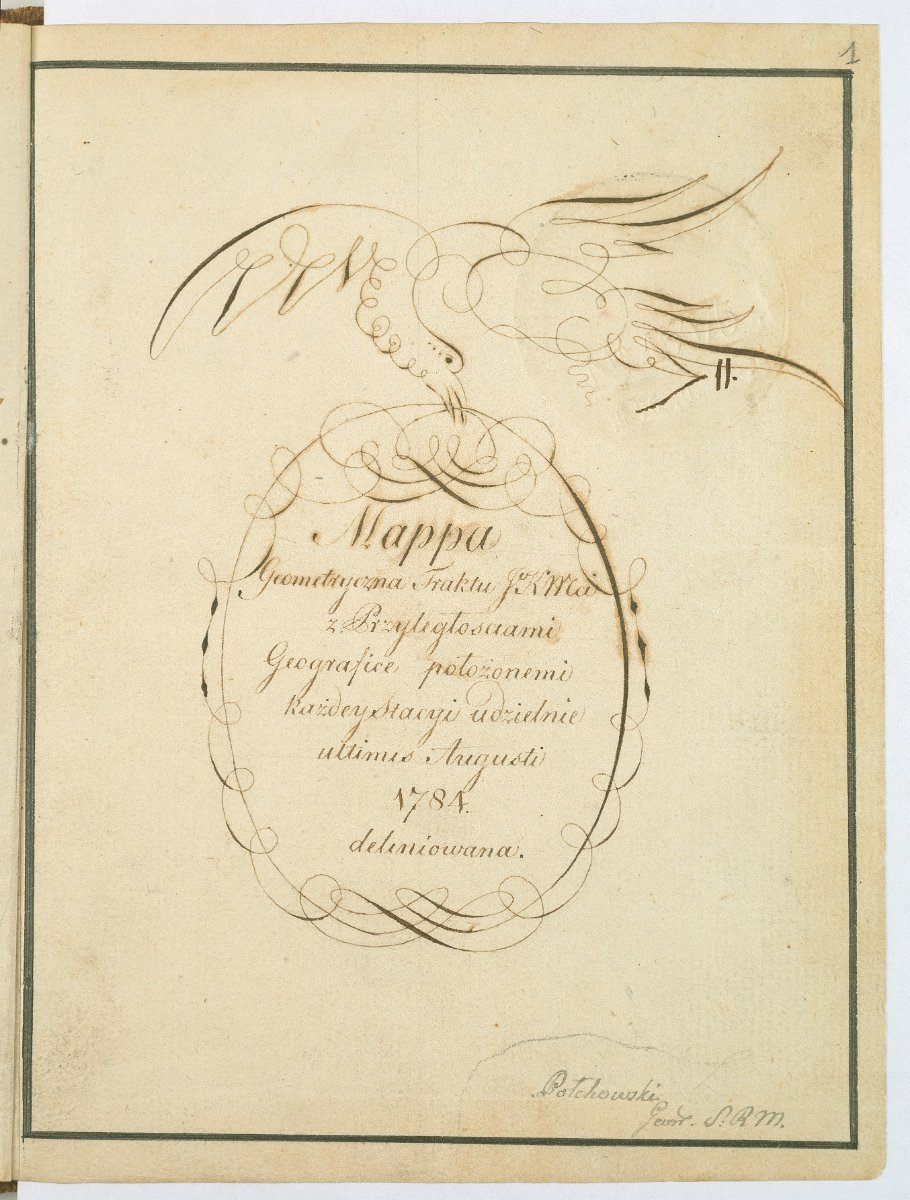 1
11.
Mappa
Geometryczna Traktu JoKMci
z Przyległosciami
Geografice położonemi
każdey Stacyi udzielnie
ultimis Augusti
1784.
deliniowana.
Połchowski
Geom. S. R M.